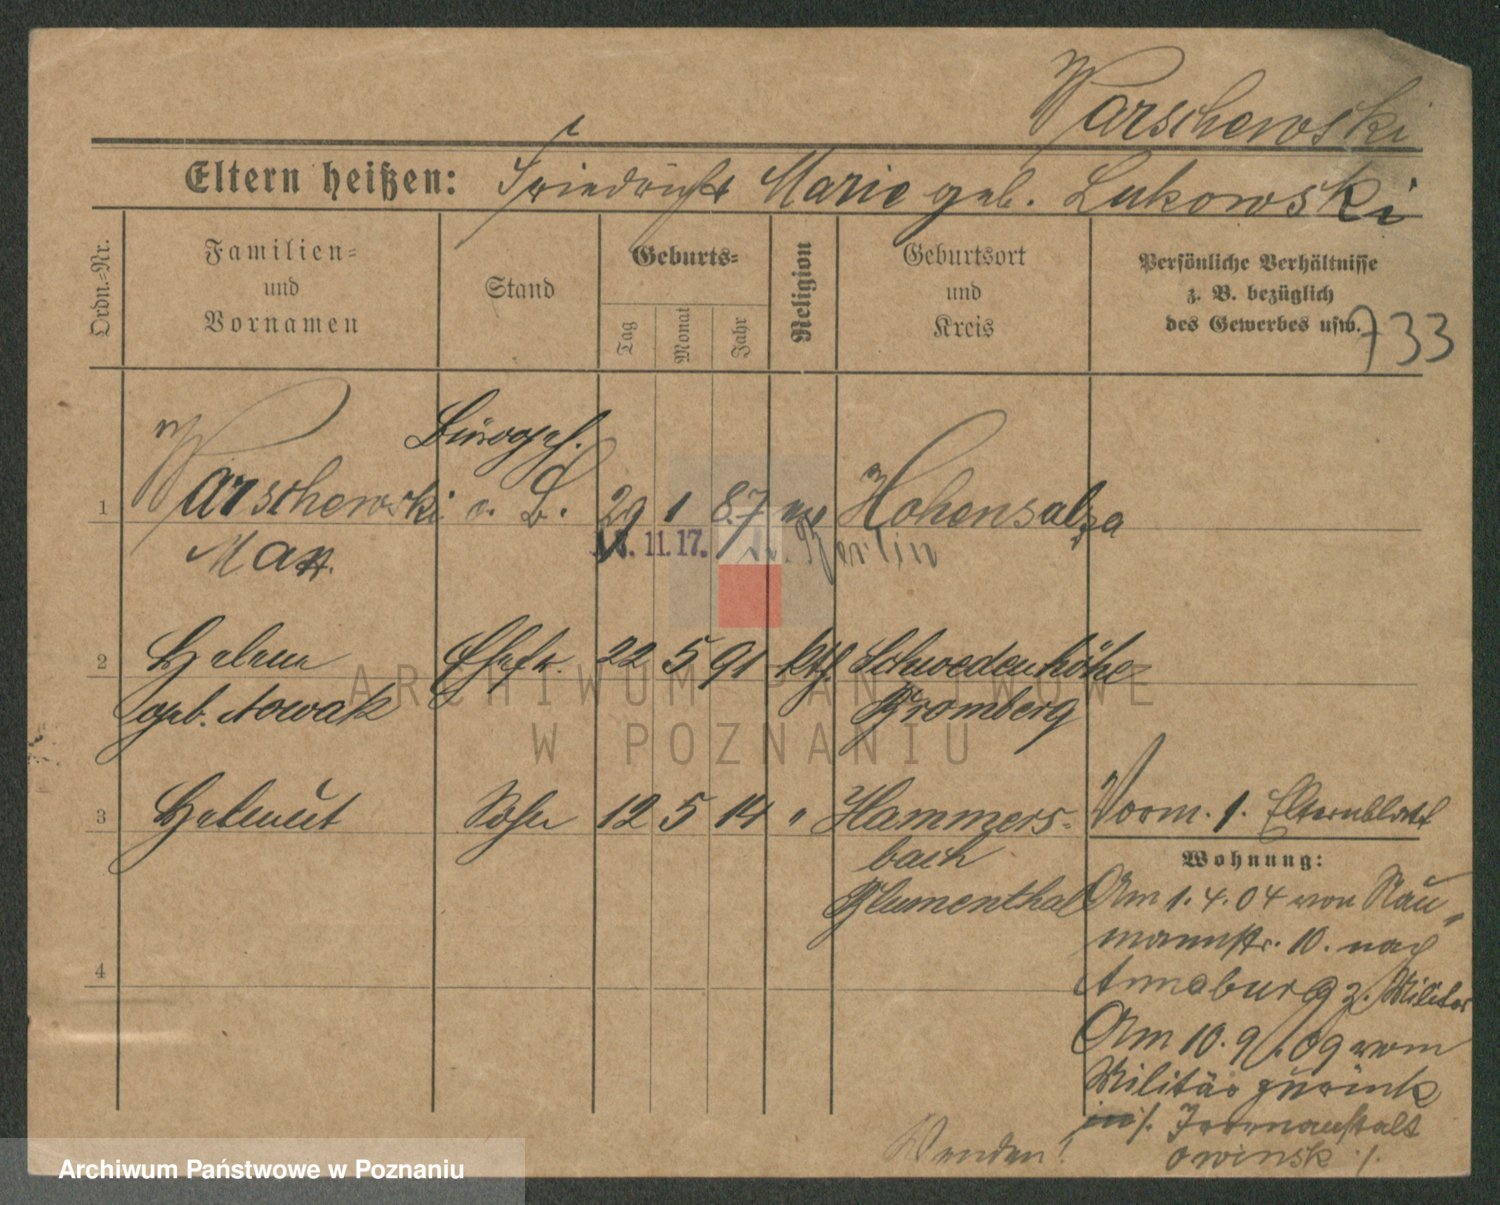 Warschewski
Eltern heißen: Friedrich Marie geb. Lukowski
Ordn.-Nr.
Familien- und Vornamen
Stand
Geburts-
Tag
Monat
Jahr
Religion
Geburtsort und Kreis
Persönliche Verhältnisse
z. B. bezüglich
des Gewerbes usw.
733
1 Warschewski Bürogeh. a. D. 29 1 87 Hohensalza
Max. 11.17. Berlin
2 Helene Ehefr. 22 5 91 kth. Schwedenhöhe
geb. Nowak Bromberg
3 Helmut Sohn 12 5 14 " Hammers-
bach
Blumenthal
Vorm. 1. Elternblatt
Wohnung:
Am 1.4.04 von Nau-
mannstr. 10. nach
Annaburg z. Militär
Am 10.9.09 vom
Militär zurück
Irrenanstalt
Owinsk
4
Wenden!
ARCHIWUM PAŃSTWOWE
W POZNANIU
Archiwum Państwowe w Poznaniu